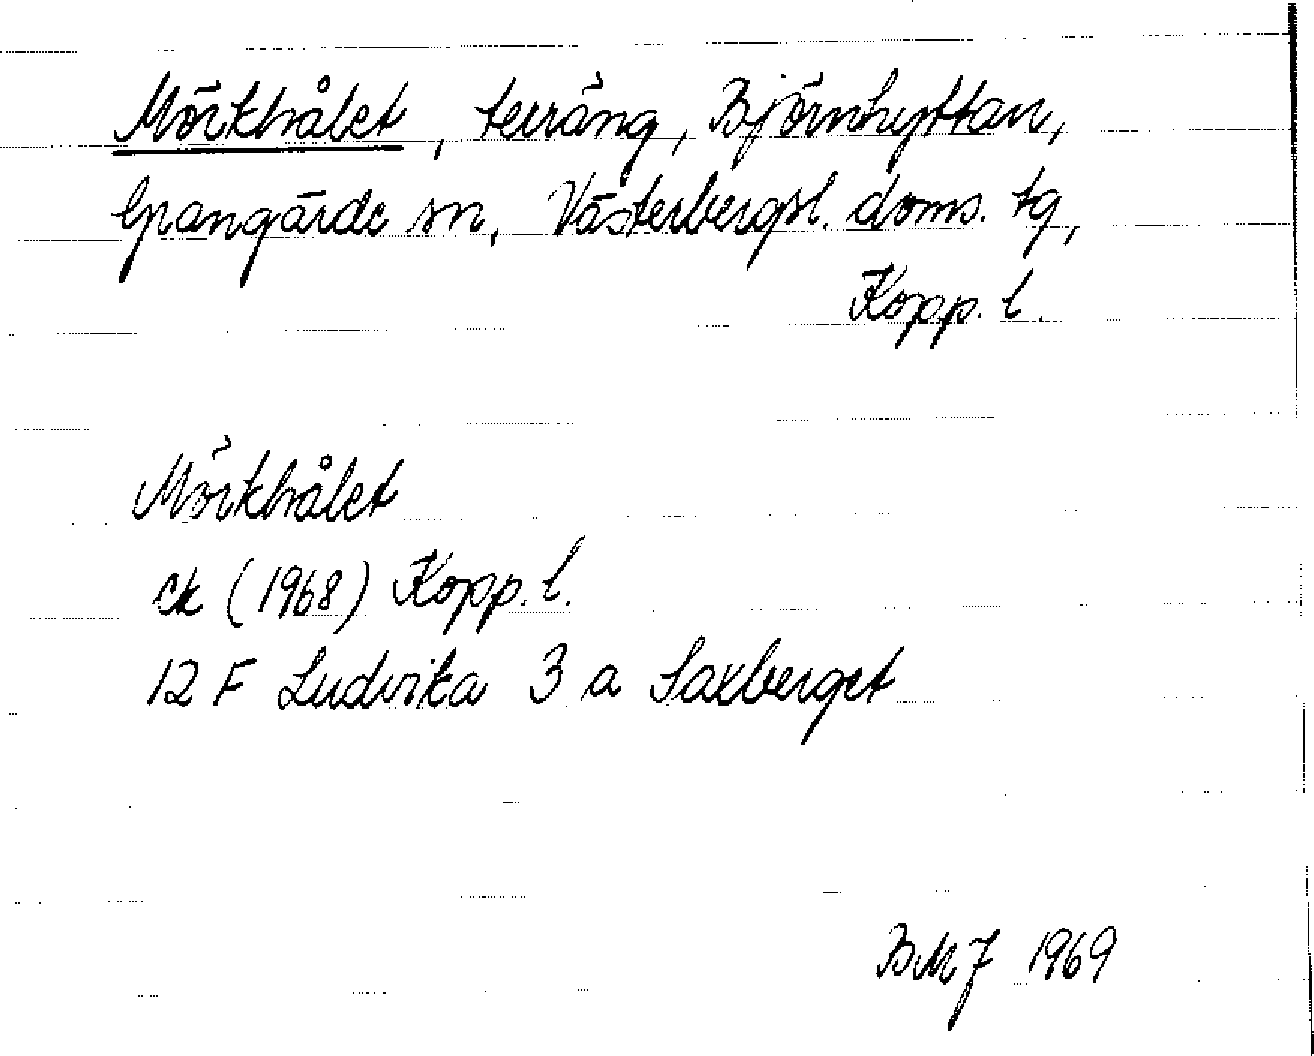 Mörkhålet, terräng, Björnhyttan,
Grangärde sn, Västerbergsl. doms. tg,
Kopp. l.
Mörkhålet
ek (1968) Kopp. l.
12 F Ludvika 3 a Saxberget
BMJ 1969